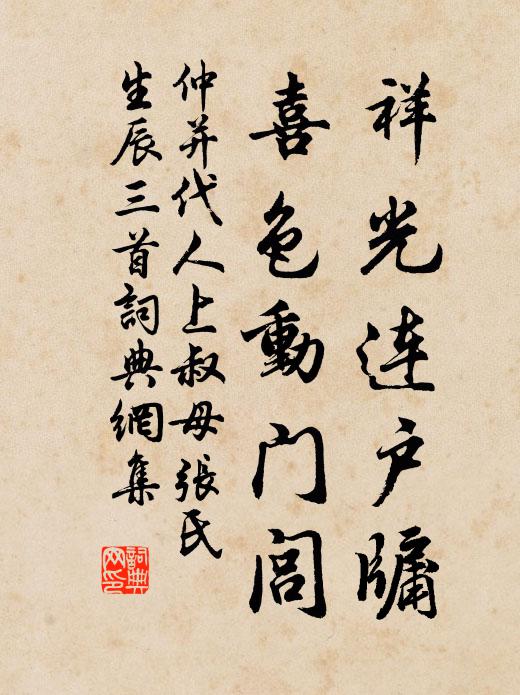 祥光连户牖
喜色動门闾
仲并代人上叔母張氏
生辰三首詞典網集
詞典网印